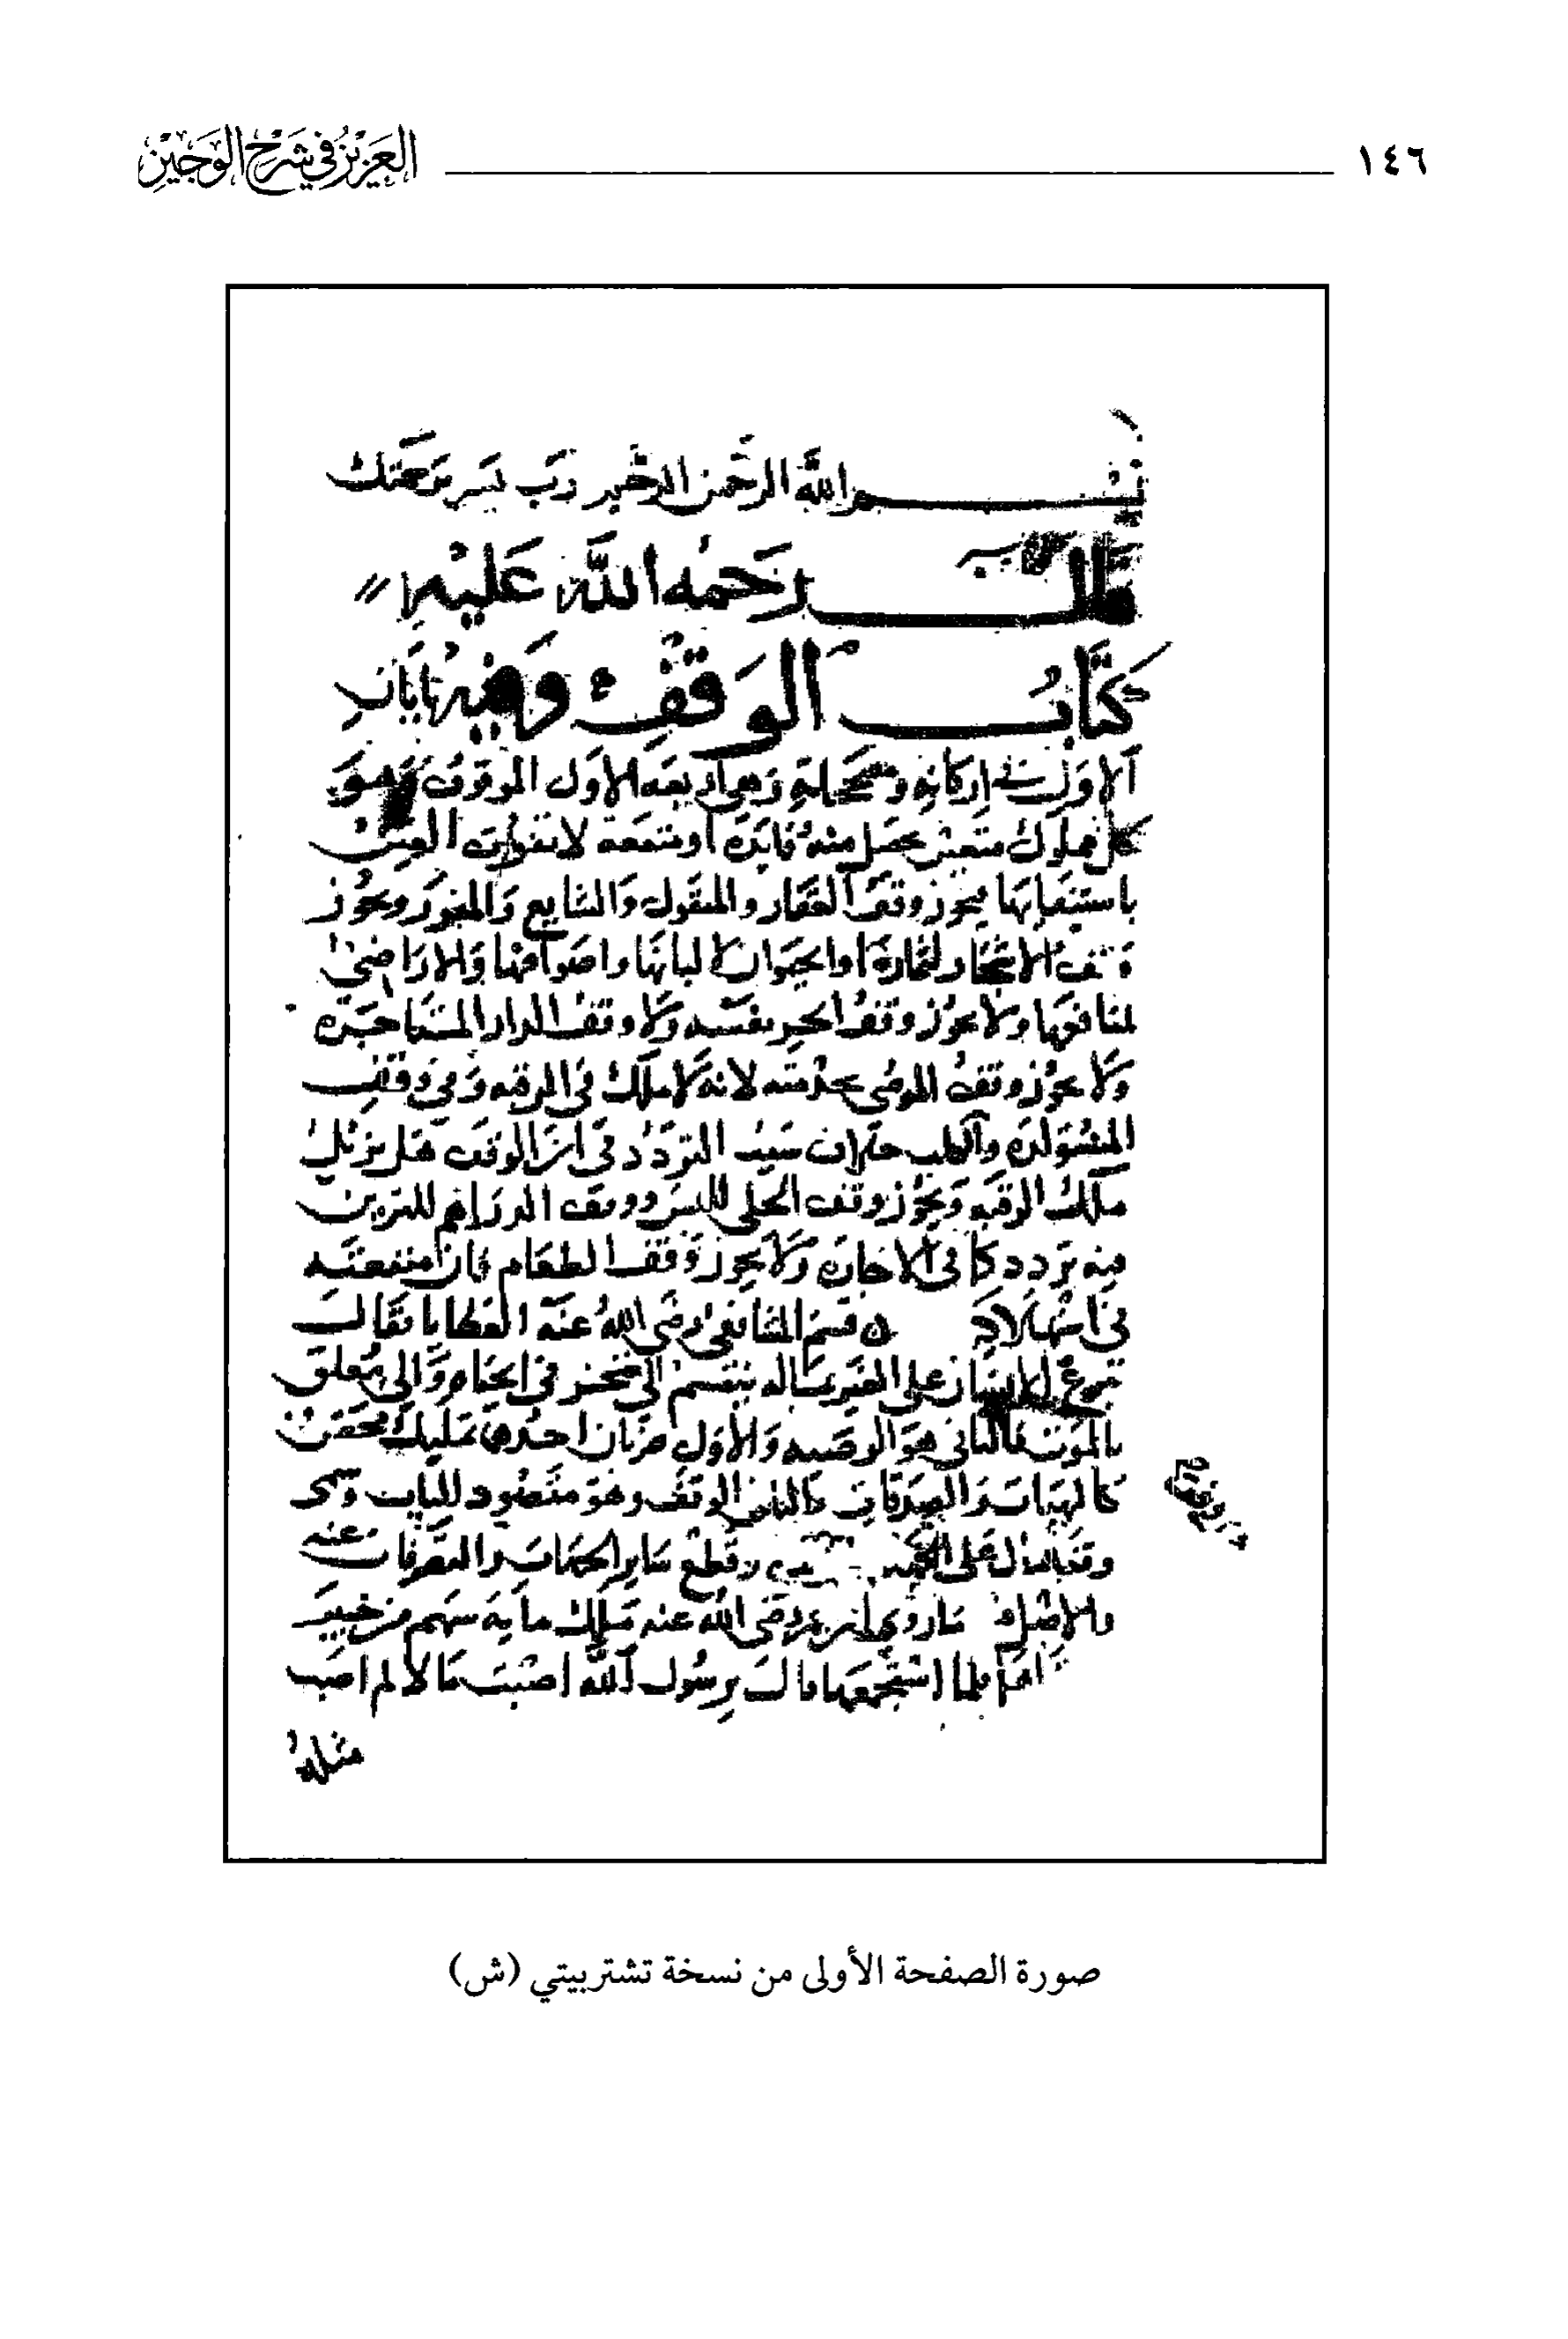 ١٤٦
العزيز في شرح الوجيز
بسم الله الرحمن الرحيم رب يسر برحمتك
قال رحمة الله عليه
كتاب الوقف وفيه بابان
الاول في اركانه ومصححاته وهي اربعة الاول الموقوف وهو
كل مملوك متعين يحصل منه فايدة او منفعة لا تفوت العين
باستيفايها يجوز وقف العقار والمنقول والشايع والمفرز ويجوز
وقف الاشجار لثمارها والحيوان لالبانها واصوافها والاراضي
لمنافعها ولا يجوز وقف الحر نفسه ولا وقف الدار المستاجرة
ولا يجوز وقف الموصى بخدمته لانه لا ملك في الرقبة وفي وقف
المستولدة والكلب خلاف سببه التردد في ان الوقف هل يزيل
ملك الرقبة ويجوز وقف الحلي للبس ووقف الدراهم للتزيين
فيه تردد كما في الاجارة ولا يجوز وقف الطعام فان منفعته
في استهلاكه قسم الشافعي رضي الله عنه العطايا فقال
تبرع الانسان على الغير بماله ينقسم الى منجز في الحياة والى معلق
بالموت فالثاني هو الوصية والاول ضربان احدهما تمليك محض
كالهبات والصدقات والثاني الوقف وهو مقصود الباب
وقطع ساير الجهات والتصرفات عنه
والاصل فيه ما روي ان عمر رضي الله عنه ملك ماية سهم من خيبر
فلما استجمعها قال يرسول الله اصبت مالا لم اصب
مثله
صورة الصفحة الأولى من نسخة تشتربيتي (ش)